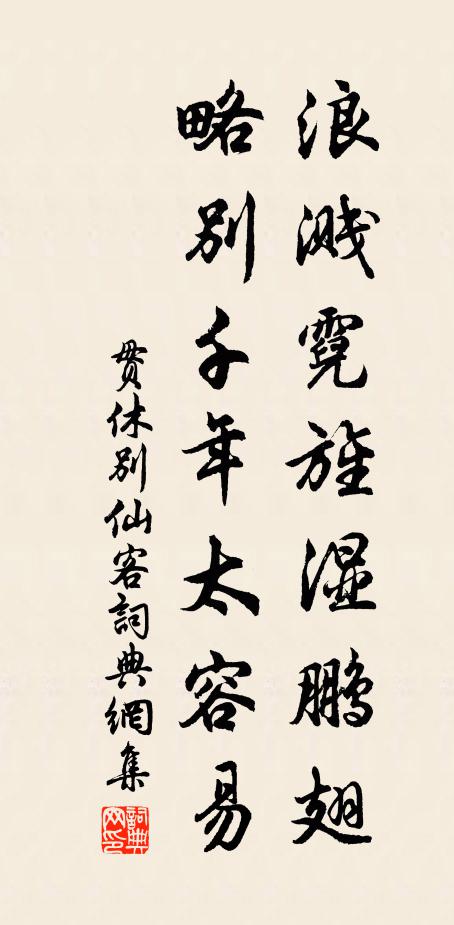 浪溅霓旌湿鹏翅
略别千年太容易
贯休别仙客詞典網集
詞典網印